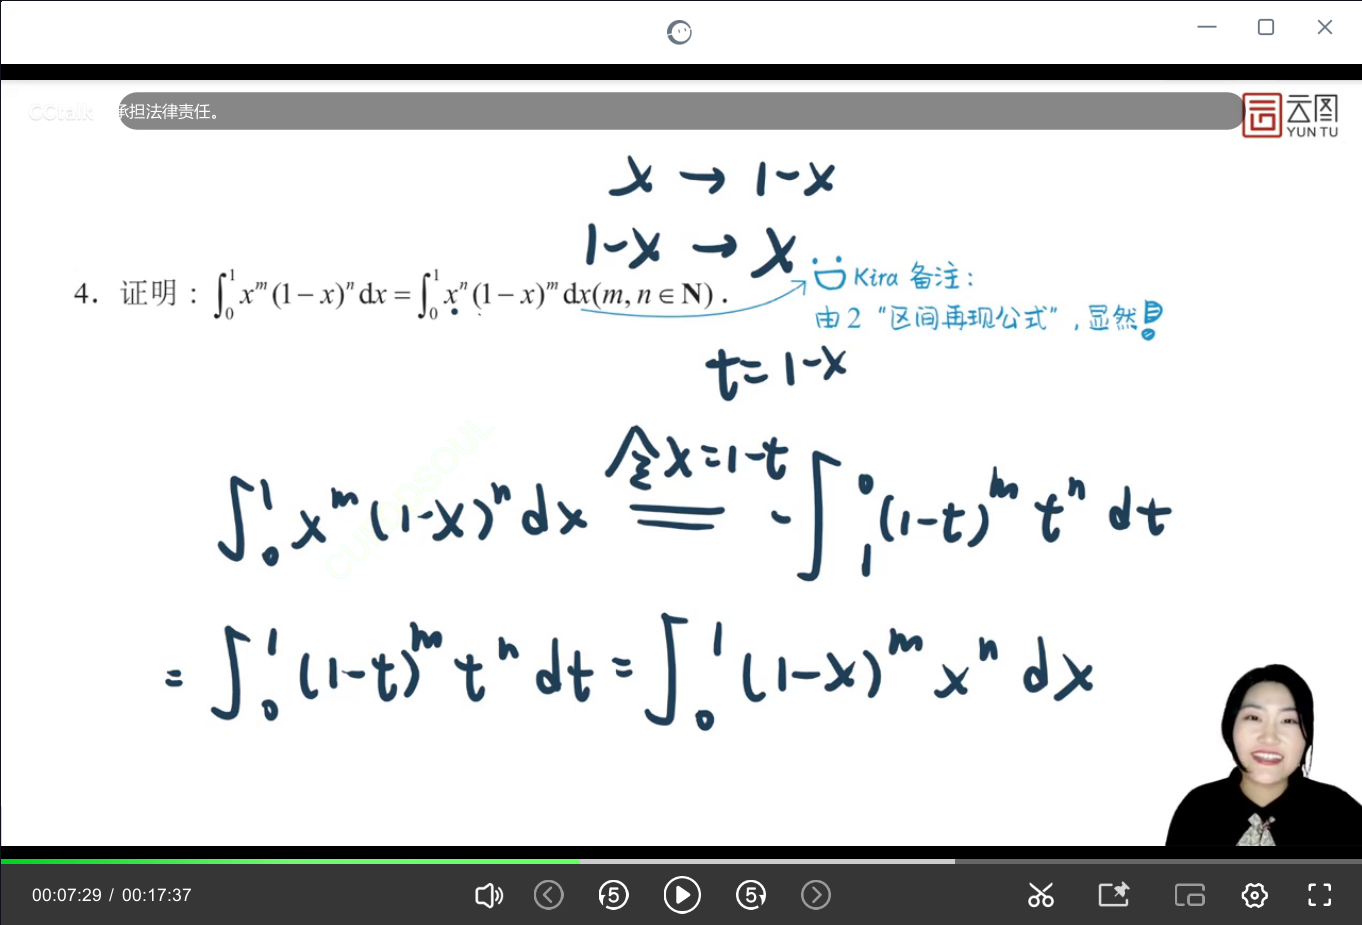 CCtalk 承担法律责任。
云图
YUN TU
x → 1-x
1-x → x
4. 证明：∫₀¹ xᵐ(1-x)ⁿdx = ∫₀¹ xⁿ(1-x)ᵐdx(m, n∈N).
Kira 备注:
由2 "区间再现公式", 显然!
t=1-x
令x=1-t
∫₀¹ xᵐ(1-x)ⁿdx = -∫₁⁰ (1-t)ᵐ tⁿ dt
= ∫₀¹ (1-t)ᵐ tⁿ dt = ∫₀¹ (1-x)ᵐ xⁿ dx
00:07:29 / 00:17:37
5 5